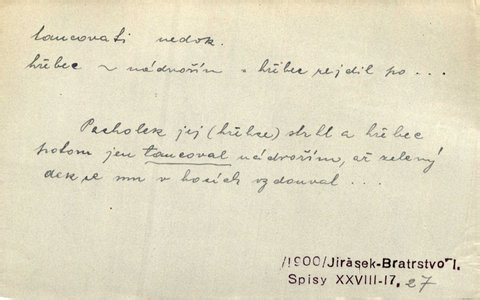 tancovati nedok.
hřbec ~ nádvořím = hřbec rejdil po ...
Pacholek jej (hřbce) strhl a hřbec
potom jen tancoval nádvořím, až zelený
dek se mu v bocích vzdouval ...
/1900/Jirásek-Bratrstvo I.
Spisy XXVIII-17, 27